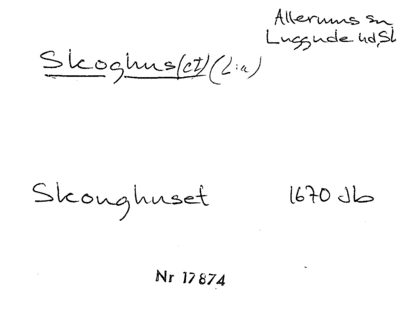 Allerums sn
Luggude hd, Sk
Skoghus(et) (L:a)
Skoughuset 1670 Jb
Nr 17874